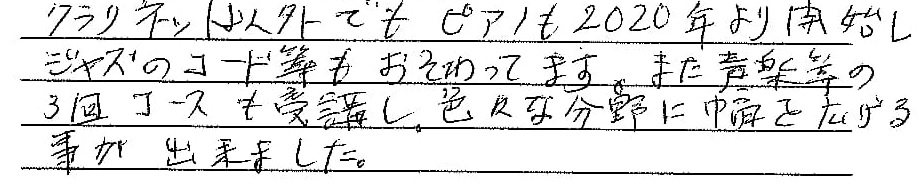 クラリネット以外でもピアノも2020年より開始し
ジャズのコード等もおそわってます。また音楽等の
3回コースも受講し、色々な分野に幅を広げる
事が出来ました。